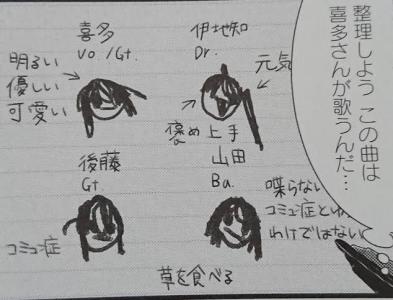 整理しよう この曲は
喜多さんが歌うんだ…
伊地知
Dr.
元気
褒め上手
喜多
Vo./Gt.
明るい
優しい
可愛い
山田
Ba.
喋らない
コミュ症とい
わけではない
草を食べる
後藤
Gt
コミュ症